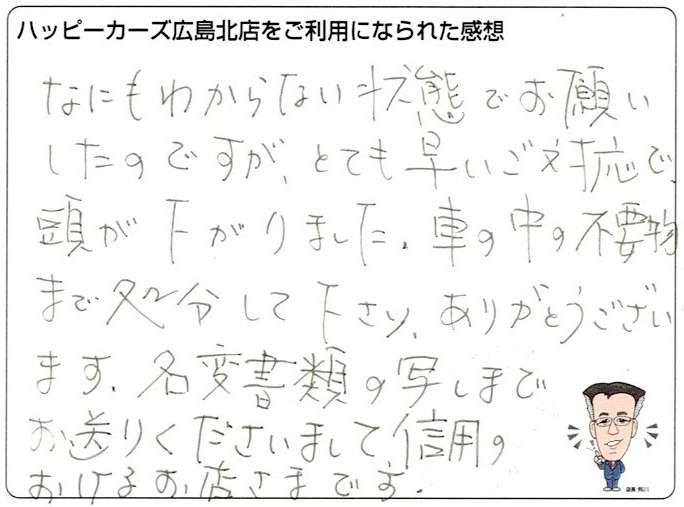 ハッピーカーズ広島北店をご利用になられた感想
なにもわからない状態でお願い
したのですが、とても早いご対応で、
頭が下がりました。車の中の不要物
まで処分して下さり、ありがとうござい
ます。名変書類の写しまで
お送りくださいまして、信用の
おけるお店さまです。
店長